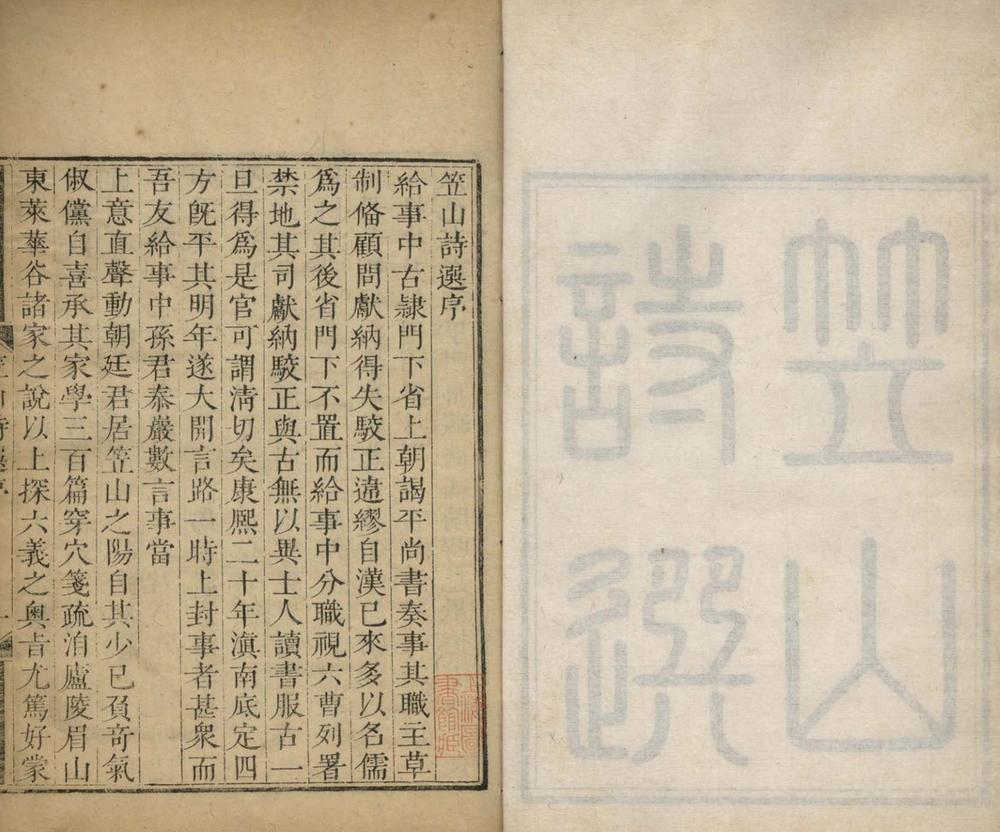 笠山
詩選
笠山詩選序
給事中古隸門下省上朝謁平尚書奏事其職主草
制偹顧問獻納得失駮正違繆自漢已來多以名儒
爲之其後省門下不置而給事中分職視六曹列署
禁地其司獻納駮正與古無以異士人讀書服古一
旦得爲是官可謂淸切矣康熙二十年滇南底定四
方旣平其明年遂大開言路一時上封事者甚衆而
吾友給事中孫君𣳾巖數言事當
上意直聲動朝廷君居笠山之陽自其少已負竒氣
俶儻自喜承其家學三百篇穿穴箋疏洎廬陵眉山
東萊華谷諸家之說以上探六義之奥㫖尤篤好蒙